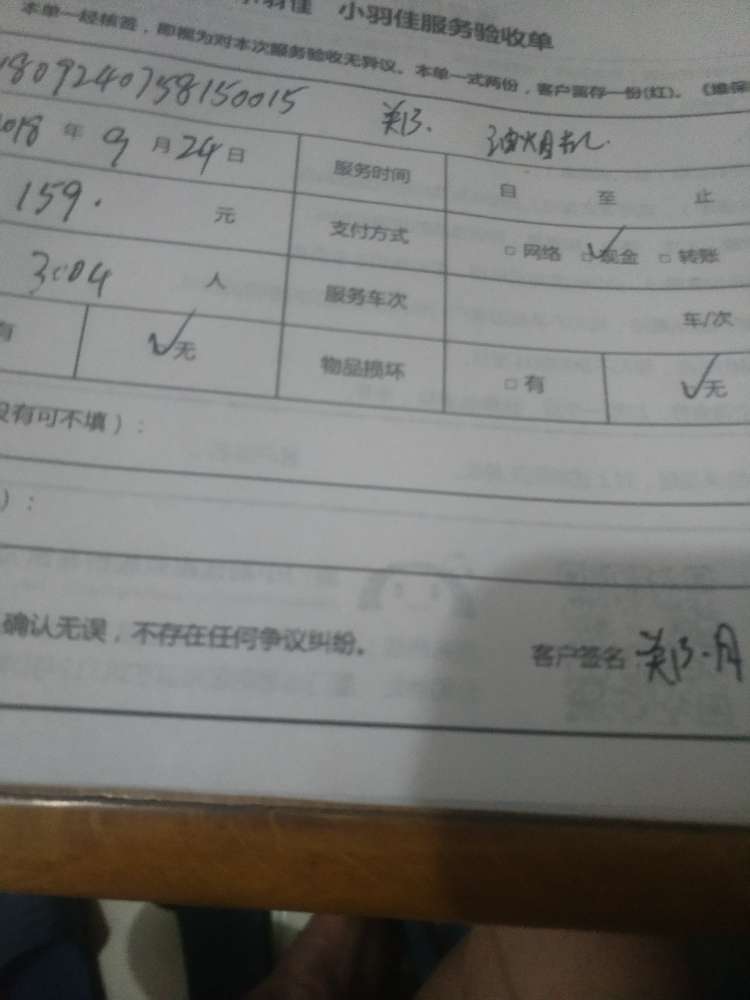 小羽佳 小羽佳服务验收单
本单一经核签，即视为对本次服务验收无异议。本单一式两份，客户留存一份(红)。《维保
1809240758150015 郑. 油烟机
2018 年 9 月 24 日 服务时间 自 至 止
159. 元 支付方式 □ 网络 ☑ 现金 □ 转账
3004 人 服务车次 车/次
有 ✓无 物品损坏 □ 有 ✓无
没有可不填）：
）：
确认无误，不存在任何争议纠纷。 客户签名 郑·月